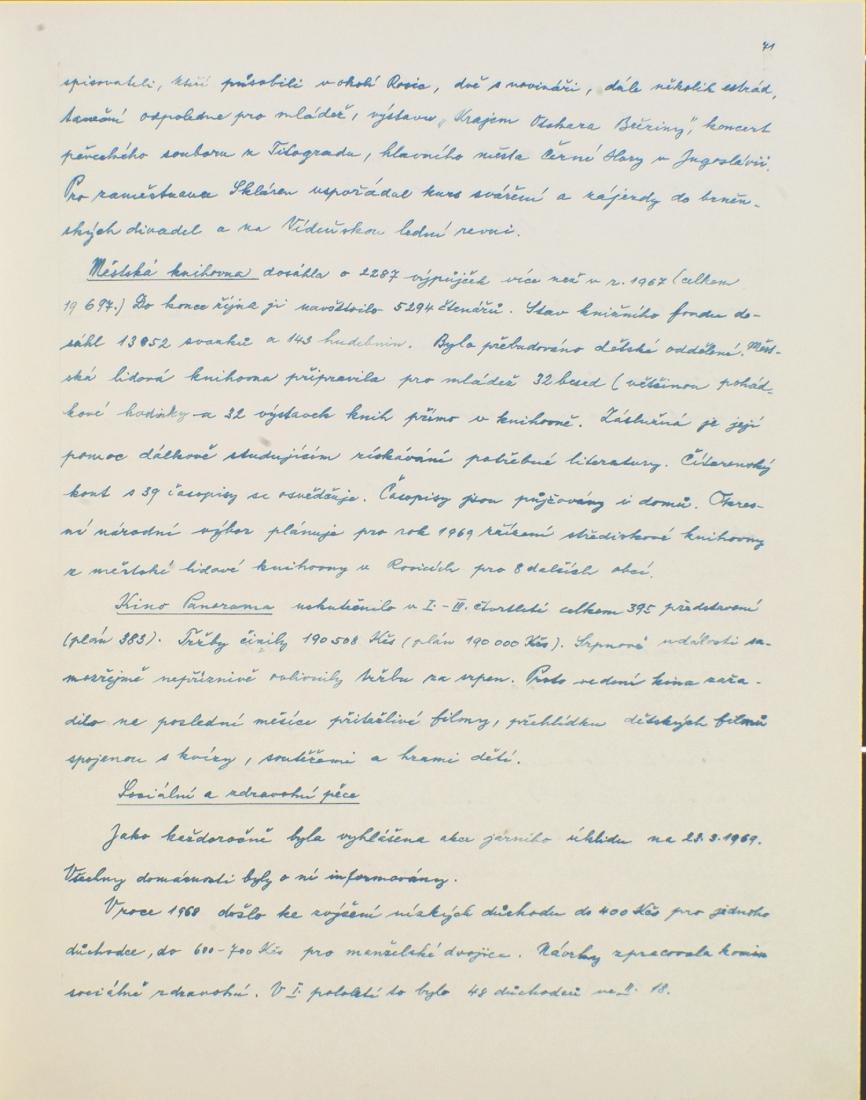 71
spisovateli, kteří působili v okolí Rosic, dvě s novináři, dále několik estrád,
taneční odpoledne pro mládež, výstavu „Krajem Otokara Březiny", koncert
pěveckého souboru z Titogradu, hlavního města Černé Hory v Jugoslávii.
Pro zaměstnance Skláren uspořádal kurs sváření a zájezdy do brněn-
ských divadel a na Vídeňskou lední revui.
Městská knihovna dosáhla o 2287 výpůjček více než v r. 1967 (celkem
19 697.) Do konce října ji navštívilo 5294 čtenářů. Stav knižního fondu do-
sáhl 13852 svazků a 143 hudebnin. Bylo přebudováno dětské oddělení. Měst-
ská lidová knihovna připravila pro mládež 32 besed (většinou pohád-
kové hodinky a 32 výstavek knih přímo v knihovně. Záslužná je její
pomoc dálkově studujícím získávání potřebné literatury. Čítárenský
kout s 39 časopisy se osvědčuje. Časopisy jsou půjčovány i domů. Okres-
ní národní výbor plánuje pro rok 1969 zřízení střediskové knihovny
z městské lidové knihovny v Rosicích pro 8 dalších obcí.
Kino Panorama uskutečnilo v I.-III. čtvrtletí celkem 395 představení
(plán 383). Tržby činily 190508 Kčs (plán 190 000 Kčs). Srpnové události sa-
mozřejmě nepříznivě ovlivnily tržbu za srpen. Proto vedení kina zařa-
dilo na poslední měsíce přitažlivé filmy, přehlídku dětských filmů
spojenou s kvizy, soutěžemi a hrami dětí.
Sociální a zdravotní péče
Jako každoročně byla vyhlášena akce jarního úklidu na 23.3.1969.
Všechny domácnosti byly o ní informovány.
V roce 1968 došlo ke zvýšení nízkých důchodů do 400 Kčs pro jednoho
důchodce, do 600-700 Kčs pro manželské dvojice. Návrhy zpracovala komise
sociálně zdravotní. V I. pololetí to bylo 48 důchodců ve II. 18.